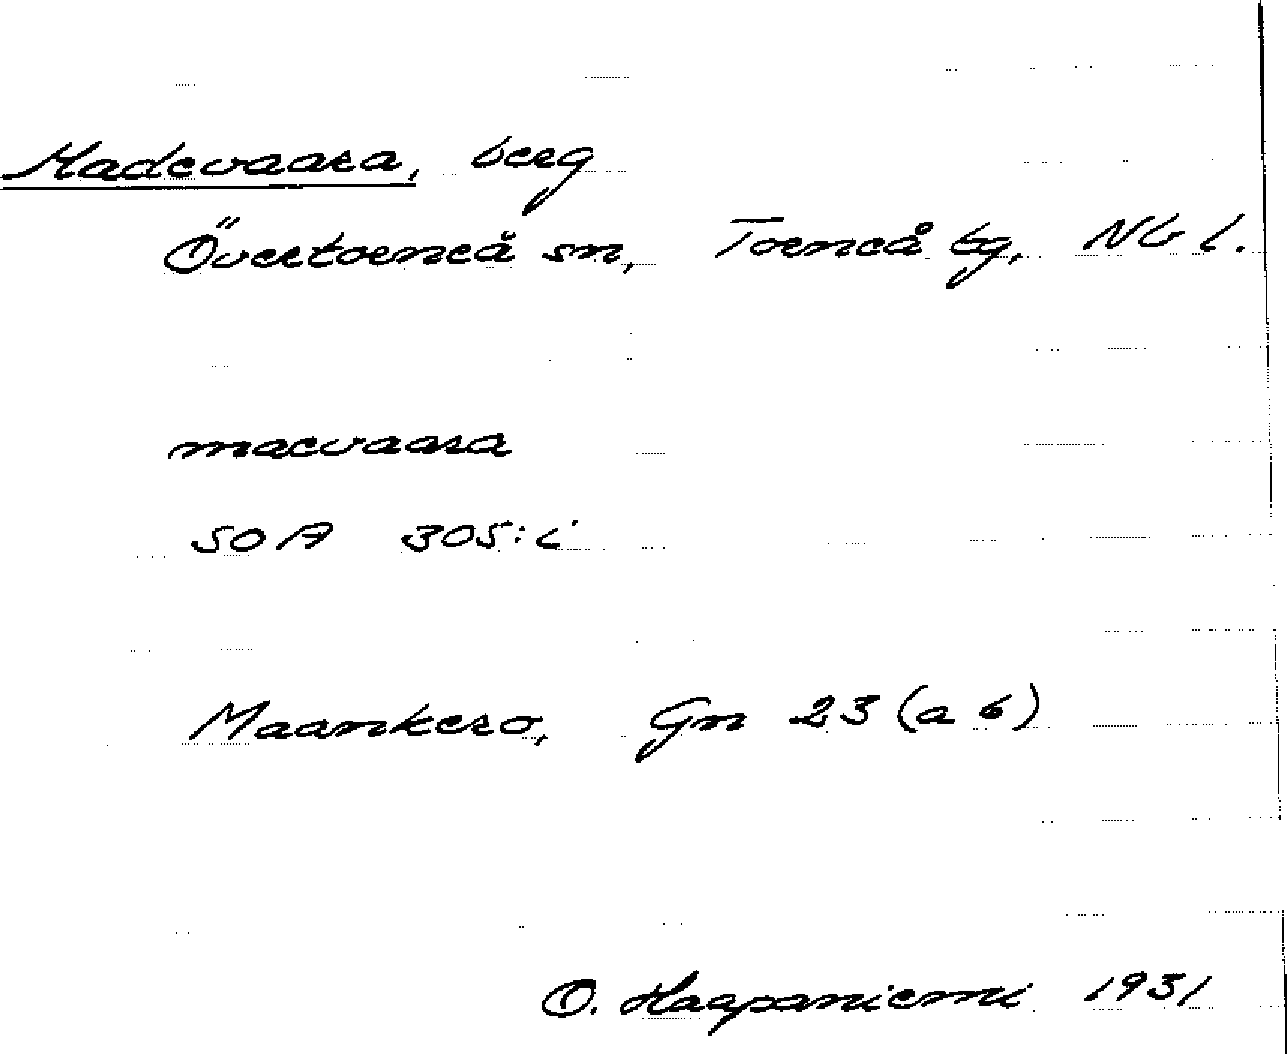 Madevaara, berg
Övertorneå sn, Torneå tg, Nb l.
maevaara
SOA 305:i
Maankero, Gn 23 (a b)
O. Haapaniemi 1931